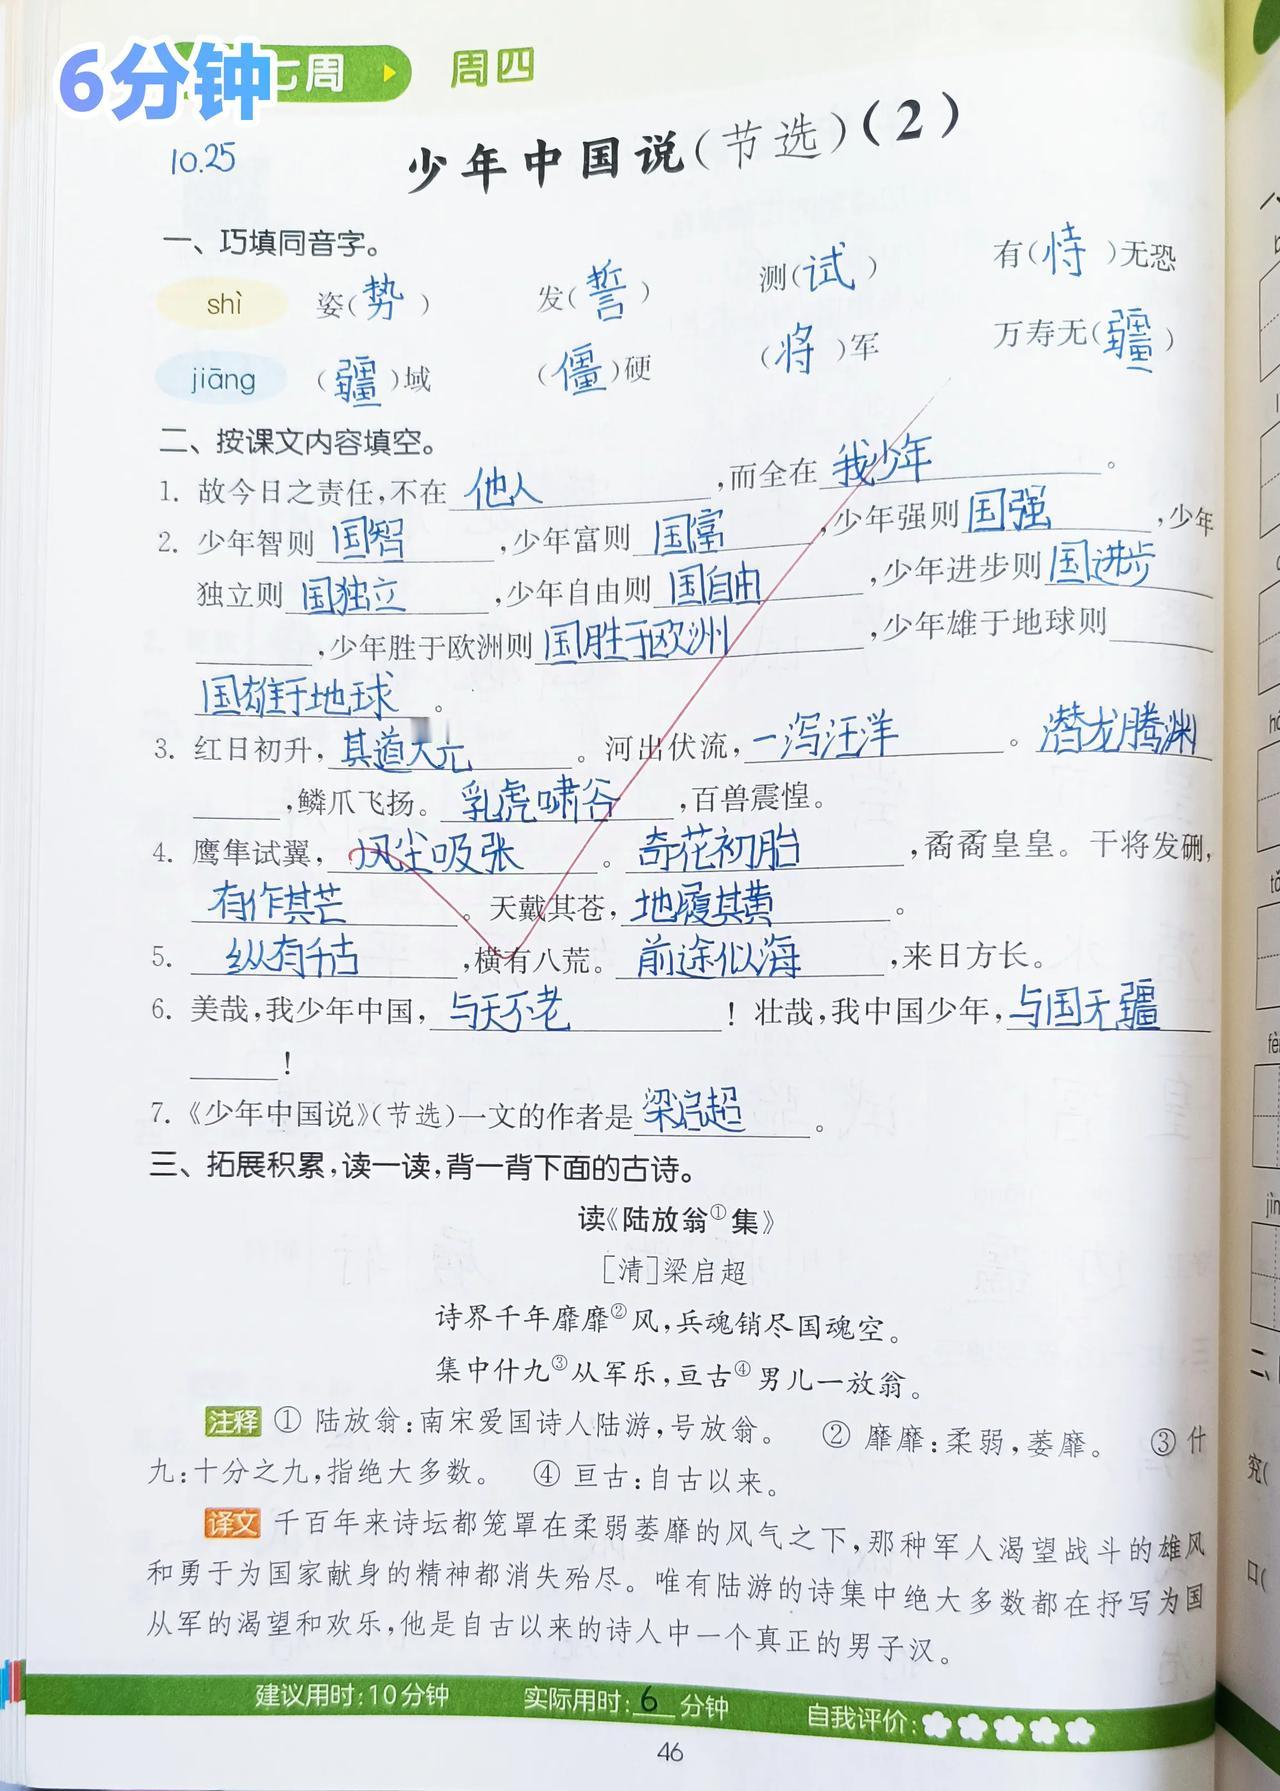 6分钟
七周 周四
10.25
少年中国说(节选)(2)
一、巧填同音字。
shì 姿(势) 发(誓) 测(试) 有(恃)无恐
jiāng (疆)域 (僵)硬 (将)军 万寿无(疆)
二、按课文内容填空。
1. 故今日之责任,不在他人,而全在我少年。
2. 少年智则国智,少年富则国富,少年强则国强,少年
独立则国独立,少年自由则国自由,少年进步则国进步
,少年胜于欧洲则国胜于欧洲,少年雄于地球则
国雄于地球。
3. 红日初升,其道大光。河出伏流,一泻汪洋。潜龙腾渊
,鳞爪飞扬。乳虎啸谷,百兽震惶。
4. 鹰隼试翼,风尘吸张。奇花初胎,矞矞皇皇。干将发硎,
有作其芒。天戴其苍,地履其黄。
5. 纵有千古,横有八荒。前途似海,来日方长。
6. 美哉,我少年中国,与天不老!壮哉,我中国少年,与国无疆
!
7.《少年中国说》(节选)一文的作者是梁启超。
三、拓展积累,读一读,背一背下面的古诗。
读《陆放翁①集》
[清]梁启超
诗界千年靡靡②风,兵魂销尽国魂空。
集中什九③从军乐,亘古④男儿一放翁。
注释 ① 陆放翁:南宋爱国诗人陆游,号放翁。 ② 靡靡:柔弱,萎靡。 ③ 什
九:十分之九,指绝大多数。 ④ 亘古:自古以来。
译文 千百年来诗坛都笼罩在柔弱萎靡的风气之下,那种军人渴望战斗的雄风
和勇于为国家献身的精神都消失殆尽。唯有陆游的诗集中绝大多数都在抒写为国
从军的渴望和欢乐,他是自古以来的诗人中一个真正的男子汉。
建议用时:10分钟 实际用时:6分钟 自我评价:
46